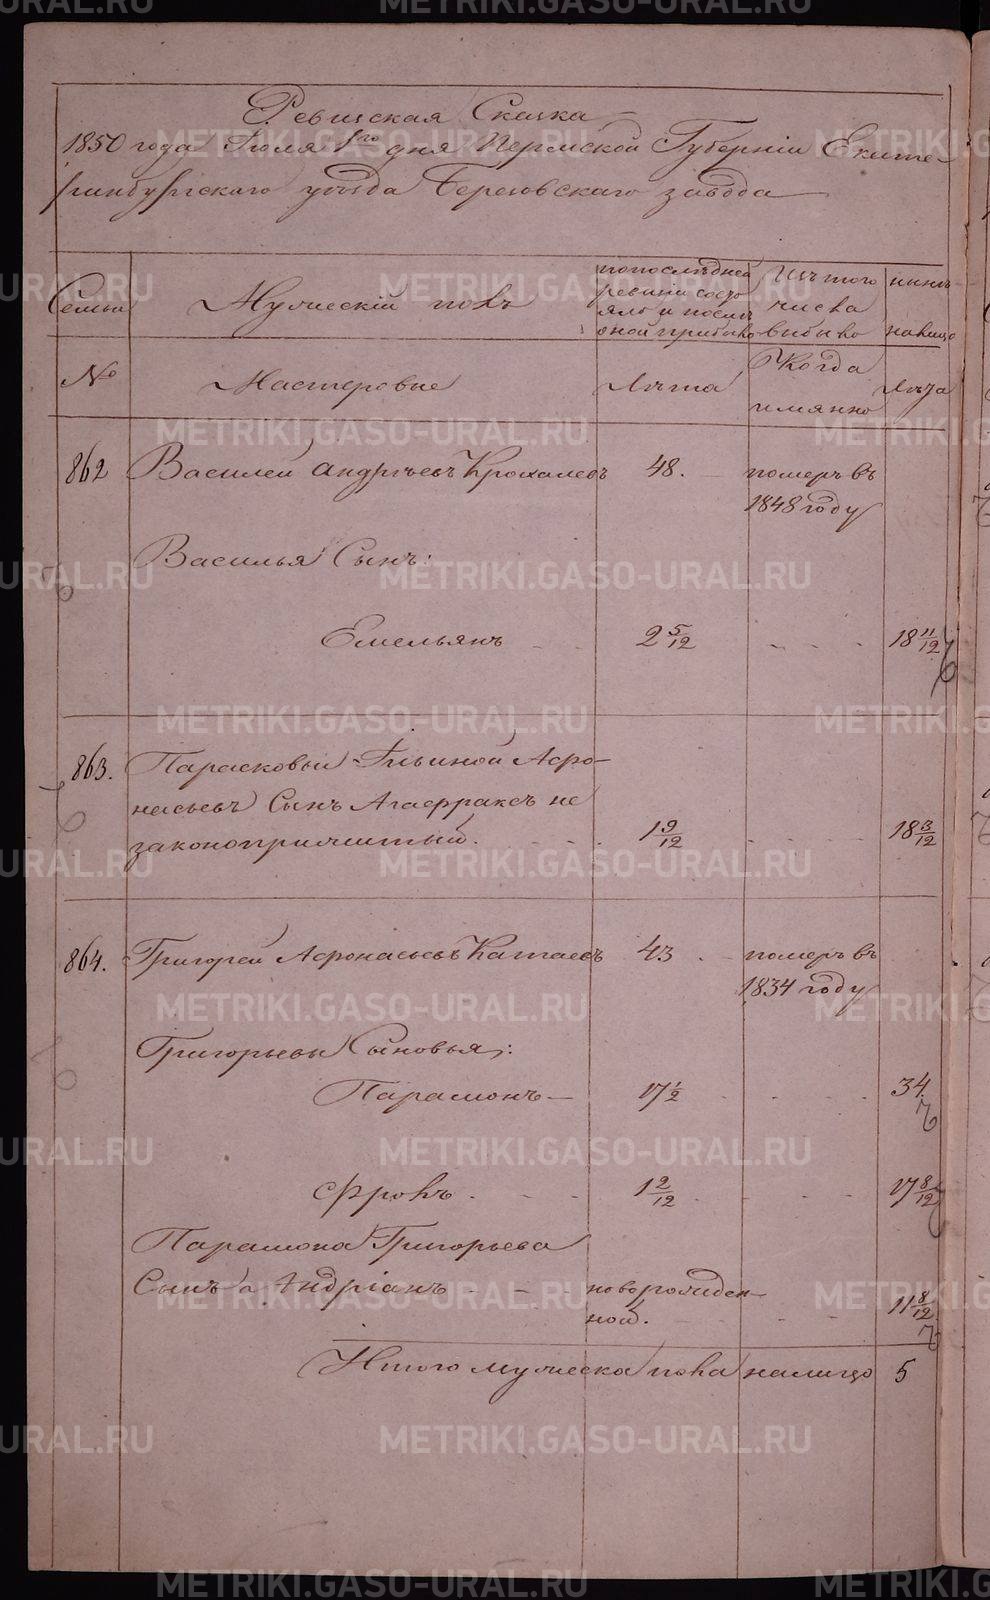 Ревижская Сказка
1850 года Іюля 1го дня Пермской Губерніи Екате-
ринбургскаго уѣзда Березовскаго завода
Семьи
Мужескій полъ
по последней
ревизіи состо
яло и после
оной прибыло
Изъ того
числа
выбыло
нынѣ
налицо
№
Мастеровые
Лѣта
Когда
имянно
Лѣта
862
Василей Андрѣевъ Крохалевъ
48.
померъ въ
1848 году
Василья Сынъ:
Емельянъ
2 5/12
18 11/12
863.
Парасковьи Ильиной Афо-
насьевъ Сынъ Агафраксъ не
законоприжитый.
1 9/12
18 3/12
864.
Григорей Афонасьевъ Катаевъ
43
померъ въ
1834 году
Григорьевы Сыновья:
Парамонъ
17 1/2
34.
Фролъ
1 2/12
17 8/12
Парамона Григорьева
Сынъ Андріанъ
новорожден-
ной.
11 8/12
Итого мужеска пола налицо 5
METRIKI.GASO-URAL.RU